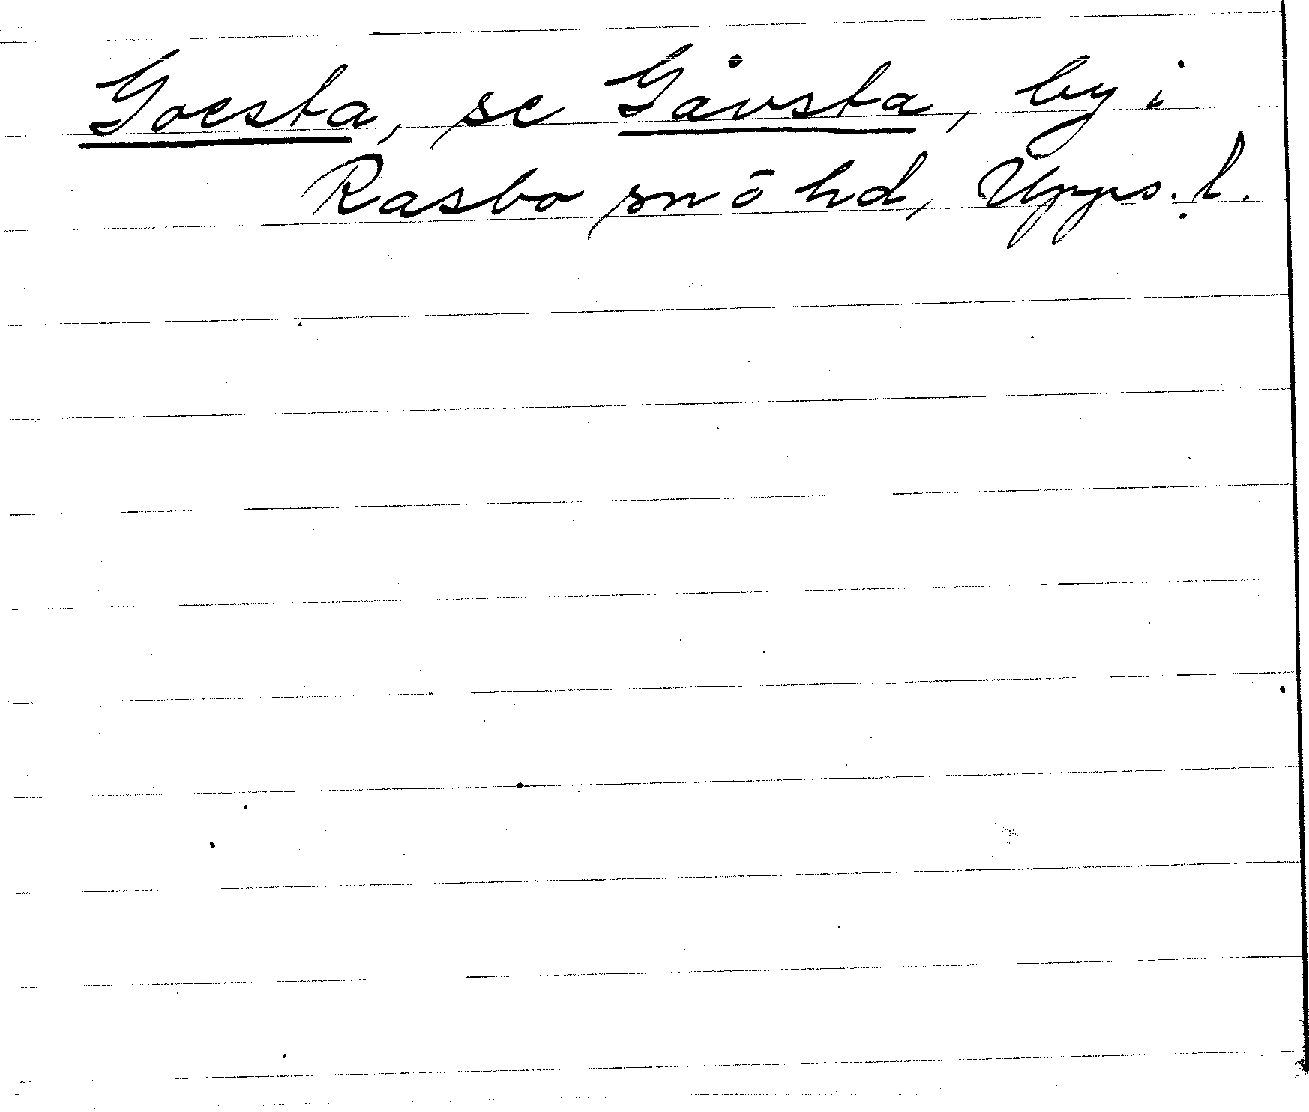 Goesta, se Gåvsta, by i
Rasbo sn o hd, Upps. l.